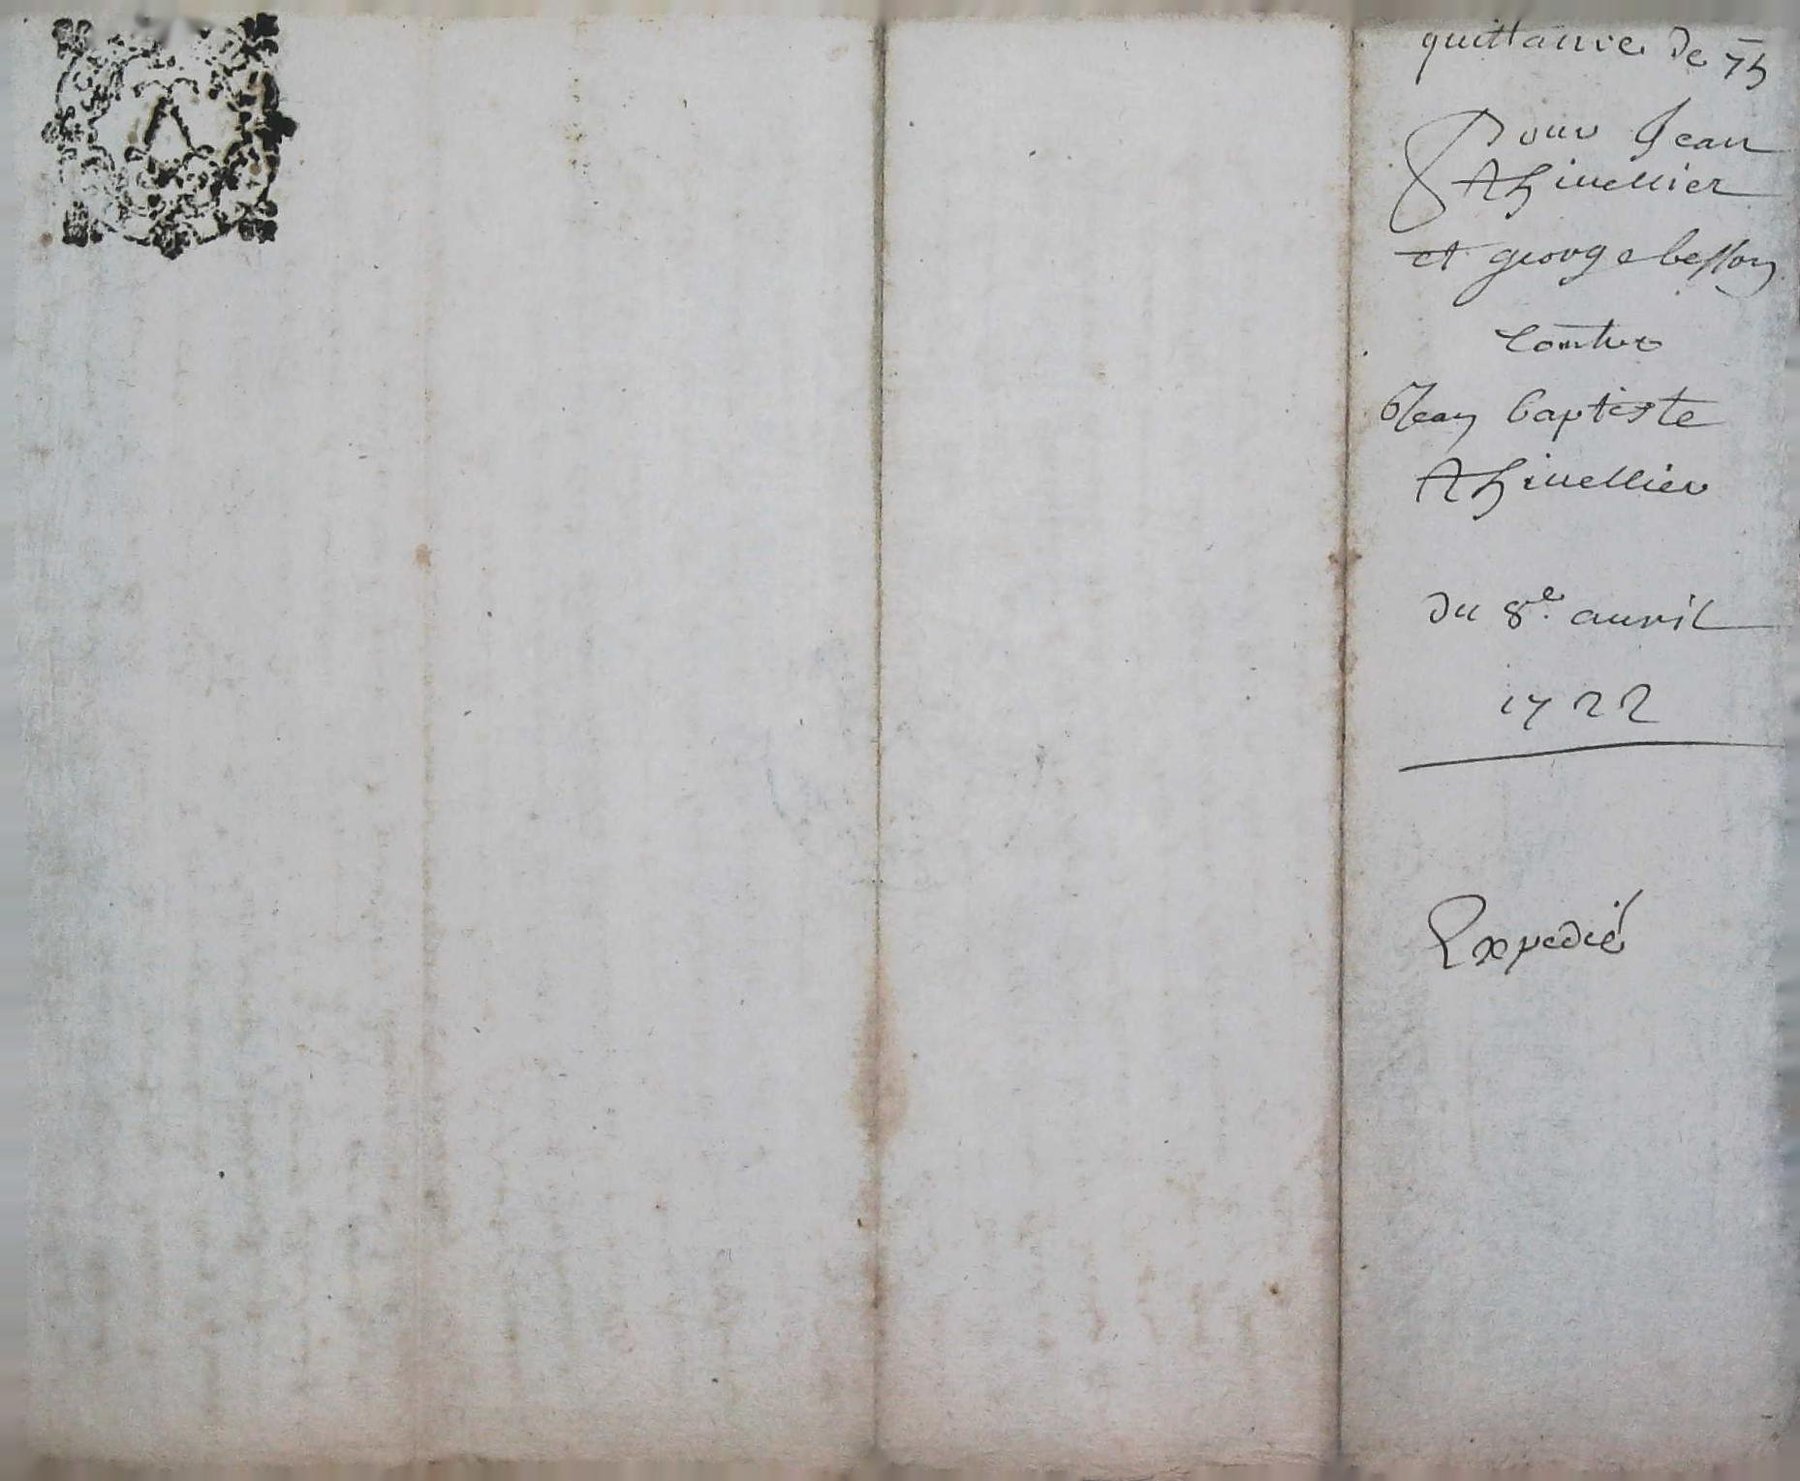 quittance de 75
Pour Jean
Thiuellier
et george besson
Contre
Jean baptiste
Thiuellier
du 8e. auril
1722
Expedié